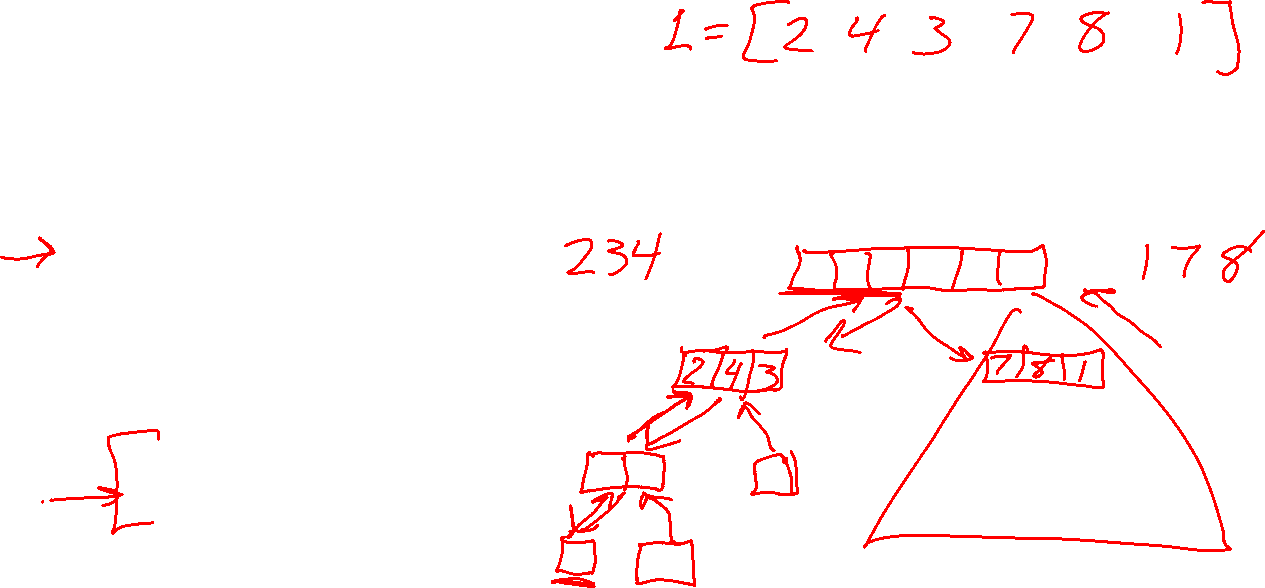 L = [2 4 3 7 8 1]
234
178
2 4 3
7 8 1